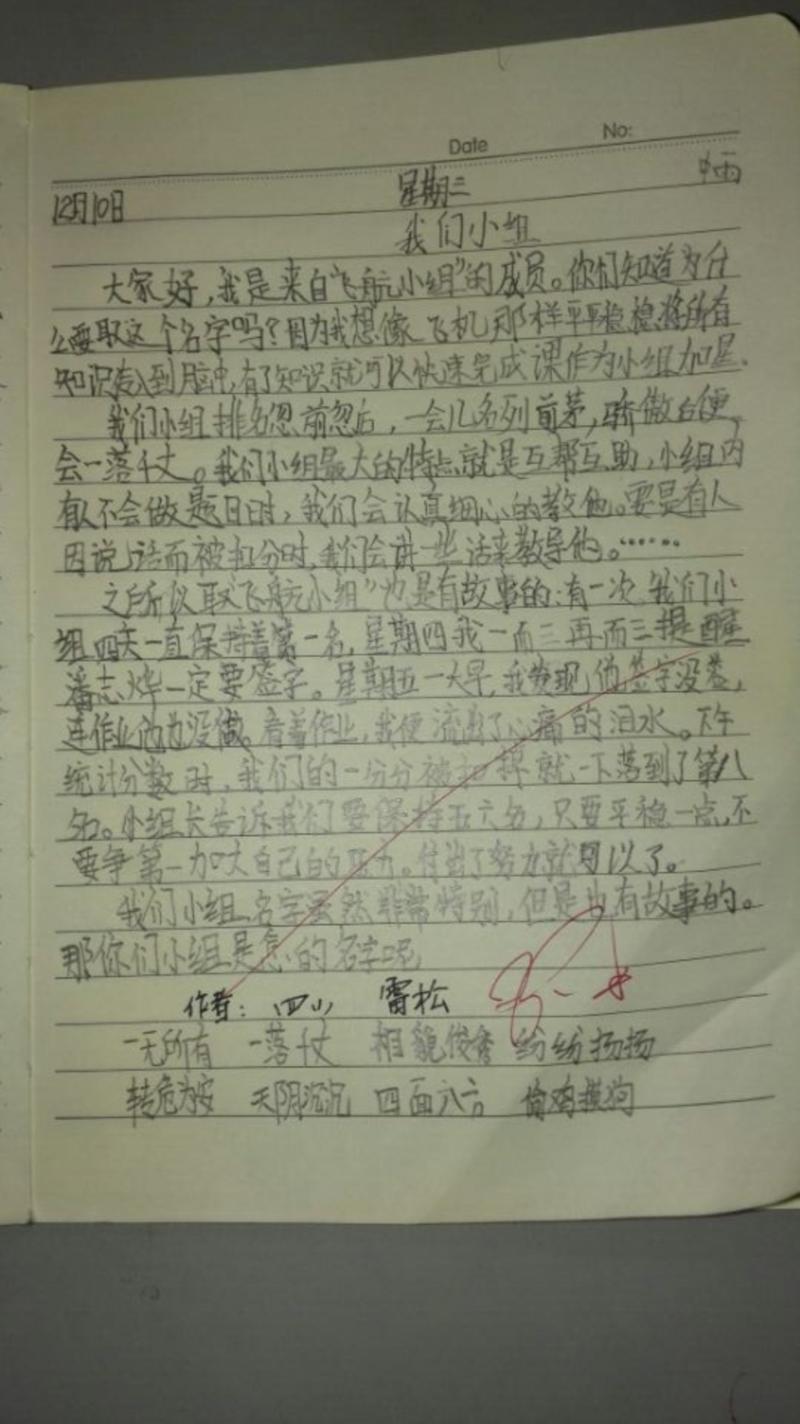 Date No:
12月10日 星期三 中雨
我们小组
大家好,我是来自“飞航小组”的成员。你们知道为什
么要取这个名字吗?因为我想像飞机那样平平稳稳将所有
知识传入到脑中,有了知识就可以快速完成课作为小组加星.
我们小组排名忽前忽后,一会儿名列前茅,骄傲了便
会一落千丈。我们小组最大的特点就是互帮互助,小组内
有人不会做题目时,我们会认真细心的教他。要是有人
因说话而被扣分时,我们会讲一些话来教导他。……
之所以取“飞航小组”也是有故事的:有一次,我们小
组四天一直保持着第一名,星期四我一而三再而三提醒
潘志烨一定要签字。星期五一大早,我发现他签字没签,
连作业也没做。看着作业,我便流出了心痛的泪水。下午
统计分数时,我们的一份分被扣掉就一下落到了第八
名。小组长告诉我们要保持五六名,只要平稳一点,不
要争第一加大自己的压力。付出了努力就可以了。
我们小组名字虽然非常特别,但是也有故事的。
那你们小组是怎的名字呢
作者: 四小 雷松
一无所有 一落千丈 相貌俊秀 纷纷扬扬
转危为安 天阴沉沉 四面八方 偷鸡摸狗